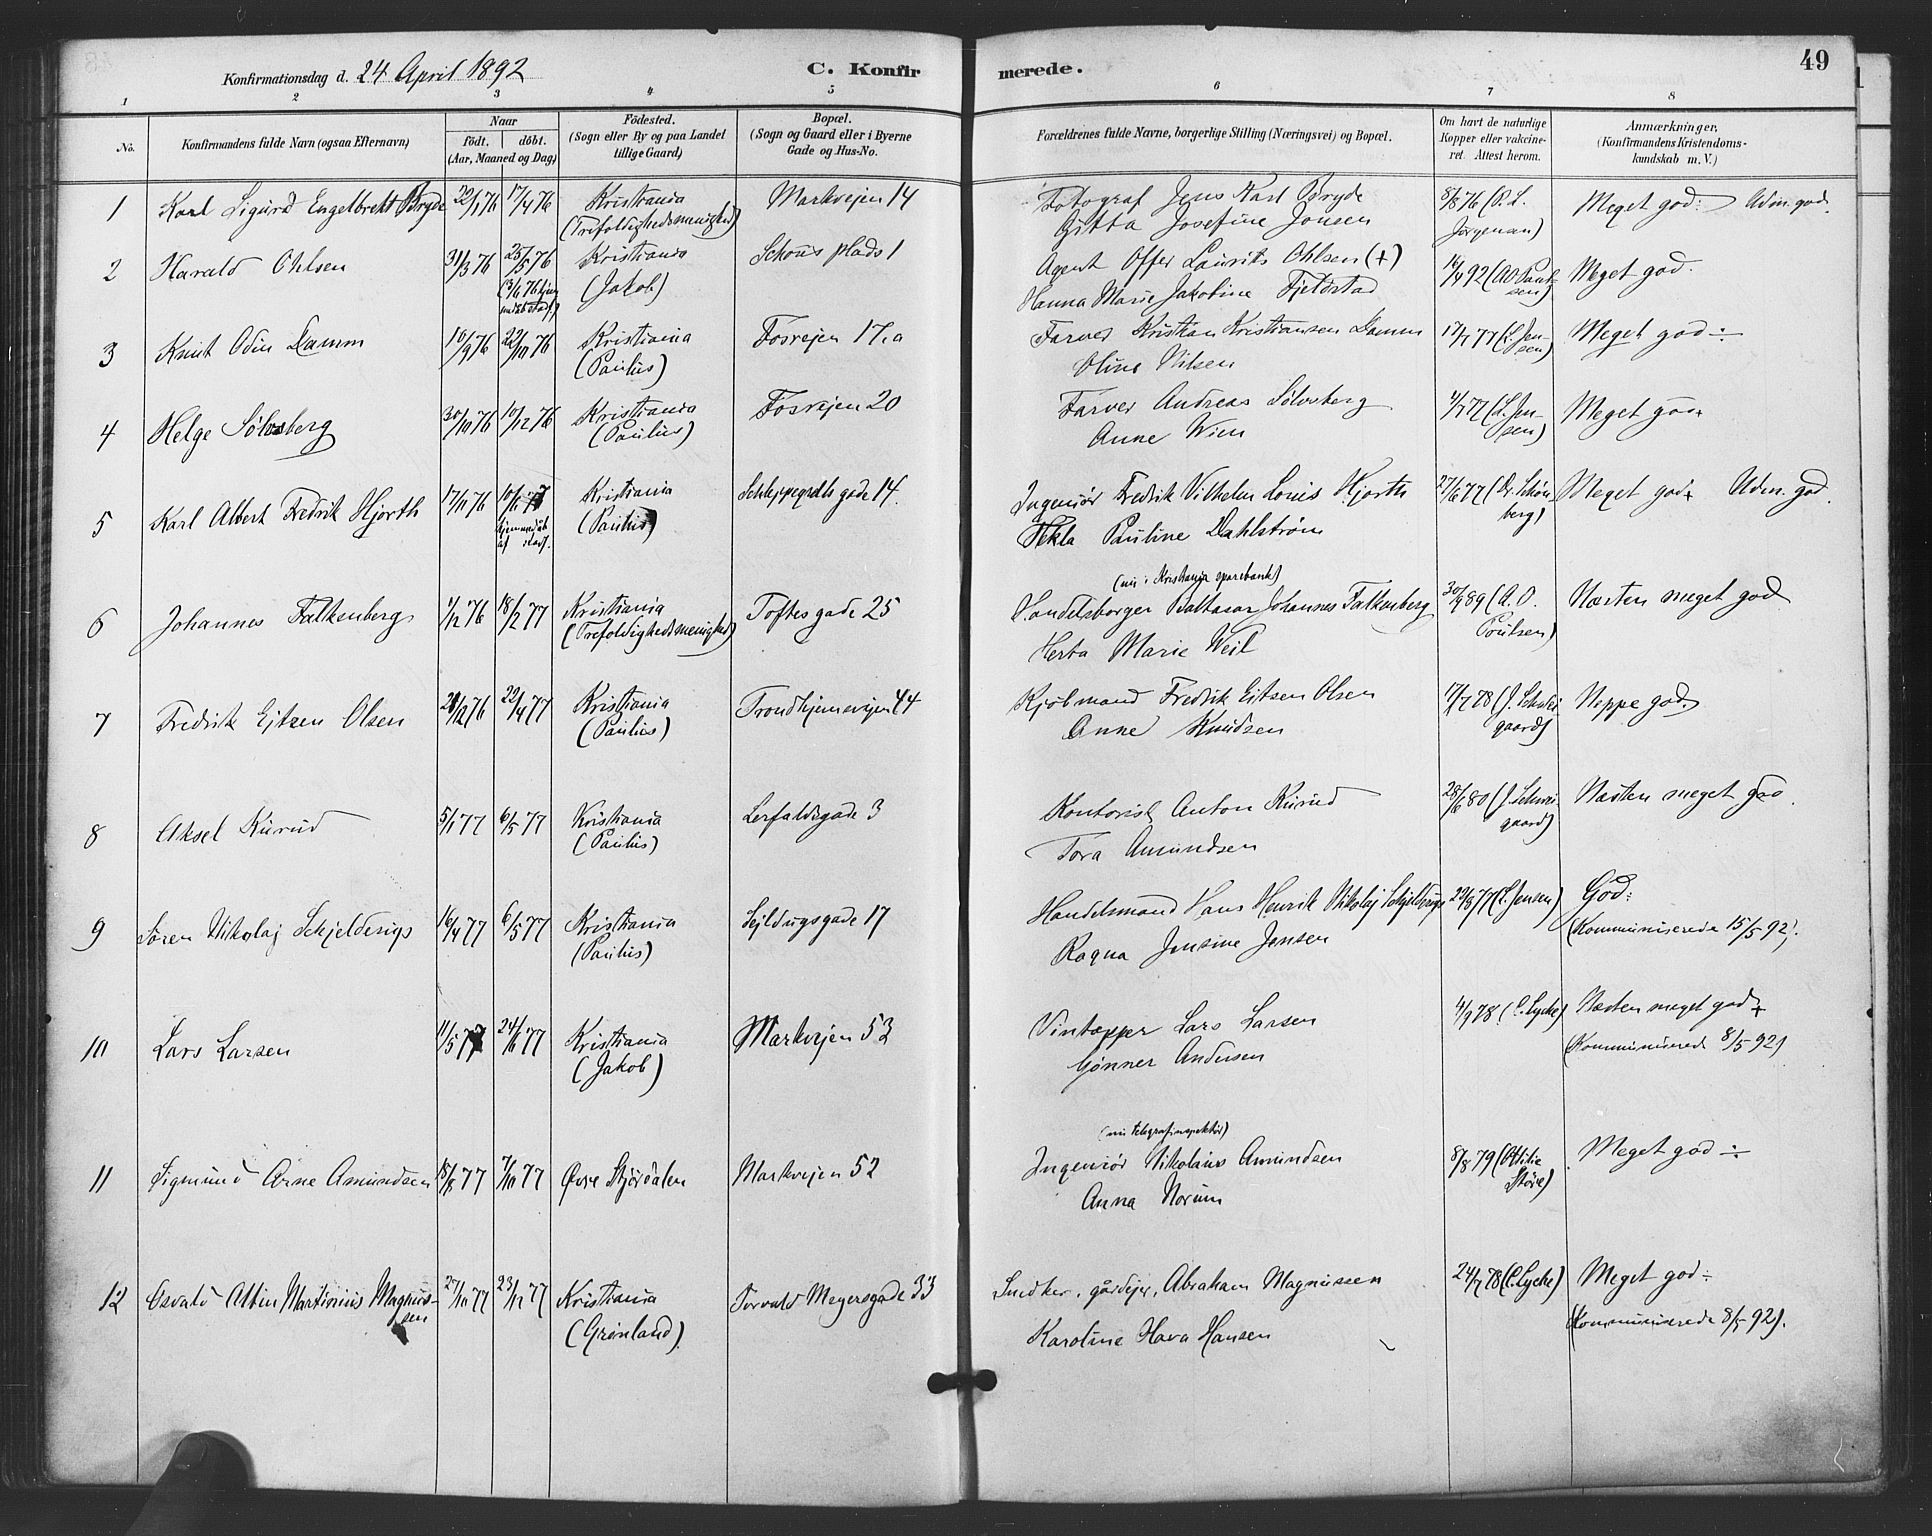 49
Konfirmationsdag d. 24 April 1892
C. Konfirmerede.
1 2 3 4 5 6 7 8
No.
Konfirmandens fulde Navn (ogsaa Efternavn)
Naar
födt. döbt.
(Aar, Maaned og Dag)
Födested.
(Sogn eller By og paa Landet
tillige Gaard)
Bopæl.
(Sogn og Gaard eller i Byerne
Gade og Hus-No.
Forældrenes fulde Navne, borgerlige Stilling (Næringsvei) og Bopæl.
Om havt de naturlige
Kopper eller vakcine-
ret. Attest herom.
Anmærkninger.
(Konfirmandens Kristendoms-
kundskab m. V.)
1 Karl Sigurd Engelbrekt Bryde 22/1 76 17/4 76 Kristiania Markvejen 14 Fotograf Jens Karl Bryde 8/8 76 Meget god: Udm. god.
(Trefoldighedsmenighed) Gitta Josefine Jonsen
2 Harald Ohlsen 31/3 76 25/5 76 Kristiania Schous plads 1 Agent Offer Laurits Ohlsen (+) 16/4 92 (A O Paul- Meget god.
(Jakob) Hanna Marie Jakobine Fjeldstad sen)
3 Knut Odin Damm 10/9 76 22/10 76 Kristiania Fosvejen 17.a Farver Kristian Kristiansen Damm 17/7 77 (L. Jen- Meget god ÷
(Paulus) Oline Nilsen sen)
4 Helge Sölvsberg 30/10 76 10/12 76 Kristiania Fosvejen 20 Farver Andreas Sölvsberg (L. Jen- Meget god
(Paulus) Anne Wien sen)
5 Karl Albert Fredrik Hjorth 17/11 76 Kristiania Schleppegrells gade 14. Ingeniör Fredrik Vilhelm Louis Hjorth 27/6 77 (Dr. Schön- Meget god + Udm. god.
(Paulus) Tekla Pauline Dahlström berg)
(nu i Kristiania sparebank)
6 Johannes Falkenberg 4/12 76 18/2 77 Kristiania Toftesgade 25 Handelsborger Baltazar Johannes Falkenberg 30/9 89 (A. O. Næsten meget god
(Trefoldighedsmenighed) Herta Marie Weil Poulsen)
7 Fredrik Eitzen Olsen 28/12 76 22/4 77 Kristiania Trondhjemsvejen 44 Kjöbmand Fredrik Eitzen Olsen 17/7 78 (J. Schwei- Neppe god.
(Paulus) Anne Knudsen gaard)
8 Aksel Kurud 5/1 77 6/5 77 Kristiania Lerfaldsgade 3 Kontorist Anton Kurud 28/6 80 (J. Schwei- Næsten meget god.
(Paulus) Tora Amundsen gaard)
9 Sören Nikolaj Schjelderup 16/4 77 6/5 77 Kristiania Sejldugsgade 17 Handelsmand Hans Henrik Nikolaj Schjelderup 22/8 77 (L. Jensen) God:
(Paulus) Ragna Jensine Jensen (Kommuniserede 15/5 92).
10 Lars Larsen 11/5 77 24/6 77 Kristiania Markvejen 53 Vintapper Lars Larsen 4/9 78 (C. Lyche) Næsten meget god +
(Jakob) Gönner Andersen (Kommuniserede 8/5 92)
(nu telegrafinspektör)
11 Sigmund Arne Amundsen 18/8 77 7/10 77 Övre Stjördalen Markvejen 52 Ingeniör Nikolaus Amundsen 8/8 79 (Ottilie Meget god ÷
Anna Norum Störe)
12 Osvald Albin Martinius Magnus- 27/10 77 23/12 77 Kristiania Torvald Meyersgade 33 Snedker, gårdejer, Abraham Magnussen 24/7 78 (C. Lyche) Meget god ÷
sen (Grönland). Karoline Hava Hansen (Kommuniserede 8/5 92).